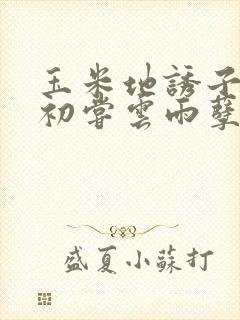 玉米地誘子
初嘗雲雨孽
盛夏小蘇打